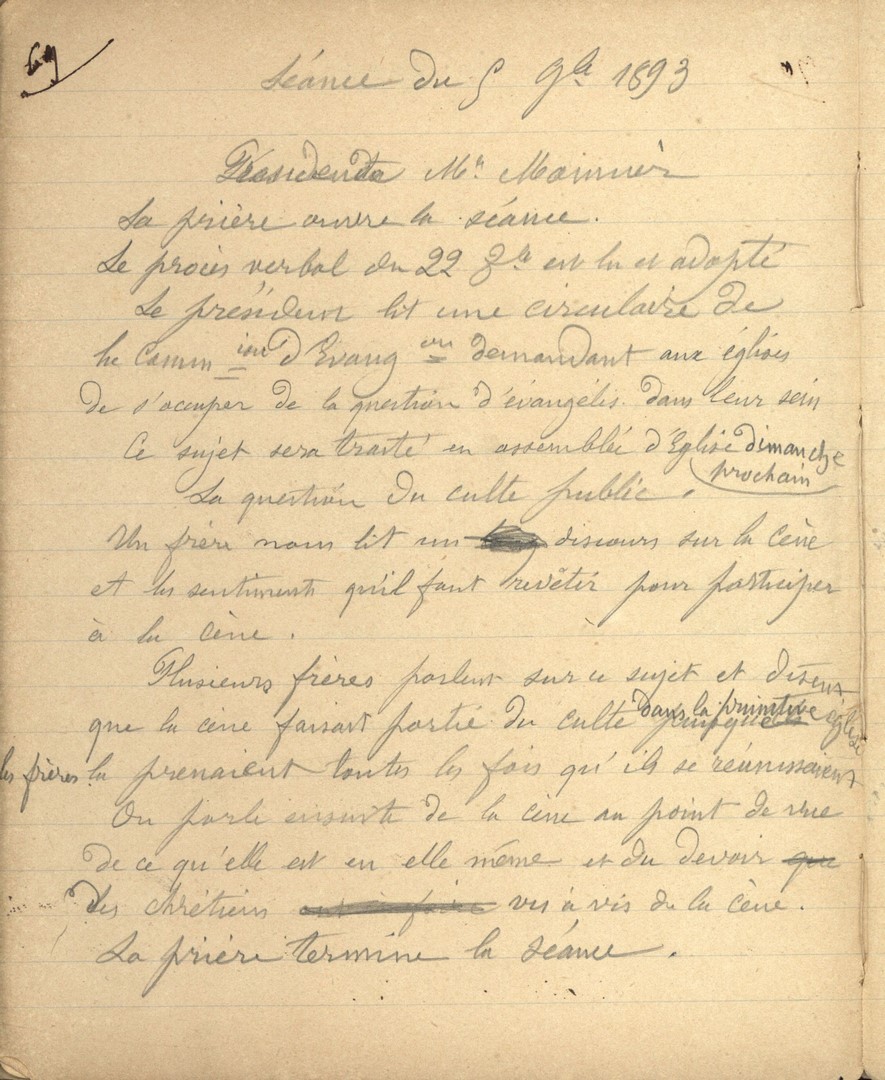 69
Séance du 5 9bre 1893
Présidence Mr. Monnier
La prière ouvre la séance.
Le procès verbal du 22 8bre est lu et adopté
Le président lit une circulaire de
la Commion d'Evangon demandant aux églises
de s'occuper de la question d'évangélis. dans leur sein
Ce sujet sera traité en assemblée d'Eglise dimanche
prochain
La question du culte public.
Un frère nous lit un discours sur la cène
et les sentiments qu'il faut revêtir pour participer
à la cène.
Plusieurs frères parlent sur ce sujet et disent
que la cène faisait partie du culte dans la primitive église puisque
les frères la prenaient toutes les fois qu'ils se réunissaient
On parle ensuite de la cène au point de vue
de ce qu'elle est en elle même et du devoir que
des chrétiens vis à vis de la cène.
La prière termine la séance.